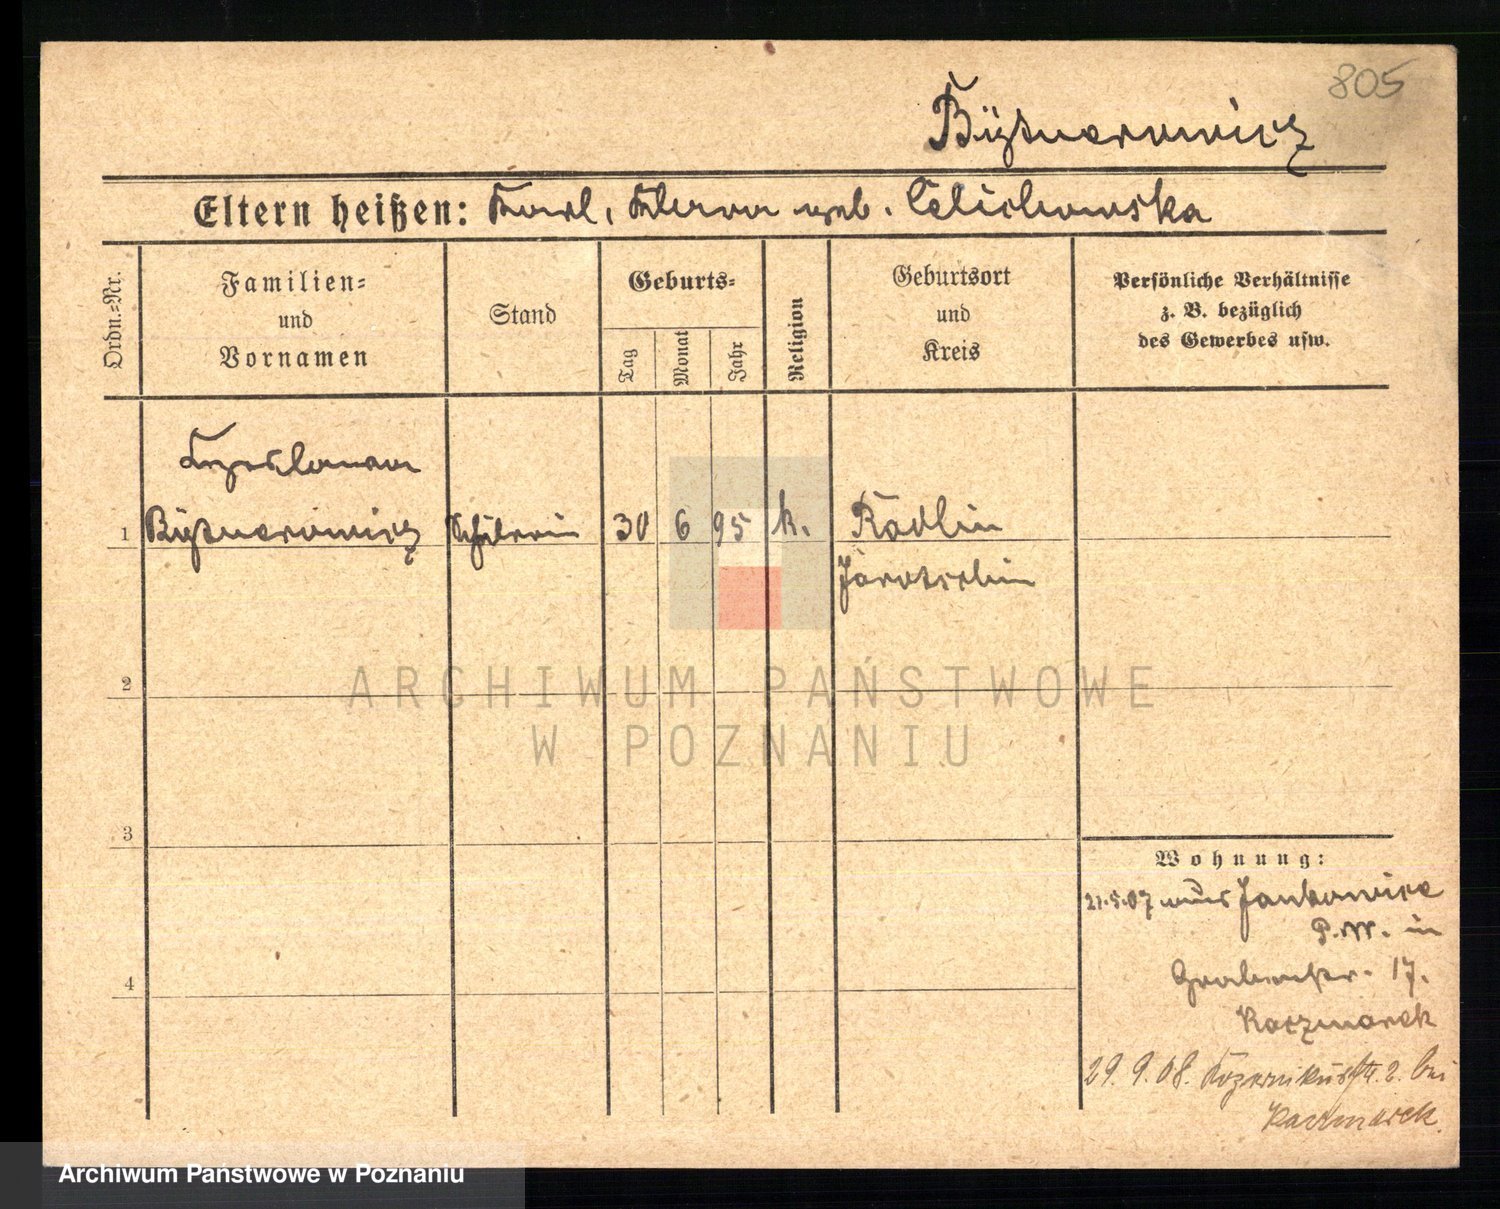 805
Büznerowicz
Eltern heißen: Karl, Klara geb. Celichowska
Ordn.-Nr.
Familien-
und
Vornamen
Stand
Geburts-
Tag
Monat
Jahr
Religion
Geburtsort
und
Kreis
Persönliche Verhältnisse
z. B. bezüglich
des Gewerbes usw.
Czeslawa
1 Büznerowicz Schülerin 30 6 95 k. Radlin
Jarotschin
ARCHIWUM PAŃSTWOWE
W POZNANIU
2
3
4
Wohnung:
21.5.07 aus Jankowice
P.W. in
Grabenstr. 17.
Kaczmarek
29.9.08. 2. bei
Kaczmarek.
Archiwum Państwowe w Poznaniu